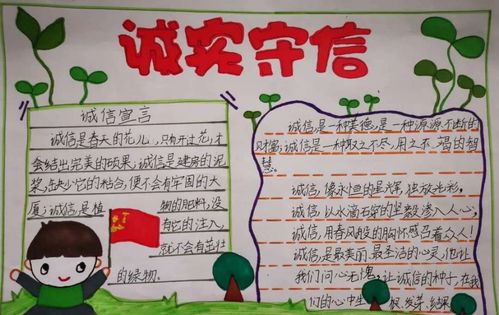 诚实守信
诚信宣言
诚信是春天的花儿,只有开过花,才
会结出完美的硕果,诚信是建房的泥
浆,缺少它的粘合,便不会有牢固的大
厦;诚信,是植 物的肥料,没
有它的注入,
就不会有茁壮
的绿物。
诚信是一种美德,是一种源源不断的
财富,诚信是一种取之不尽,用之不 竭的智
慧。
诚信,像永恒的星辉,独放光彩。
诚信,以水滴石穿的坚毅渗入人心,
诚信,用春风般的胸怀感召着众人!
诚信,是最美丽、最圣洁的心灵,他让
我们问心无愧,让诚信的种子,在我
们的心中生 根、发芽、结果